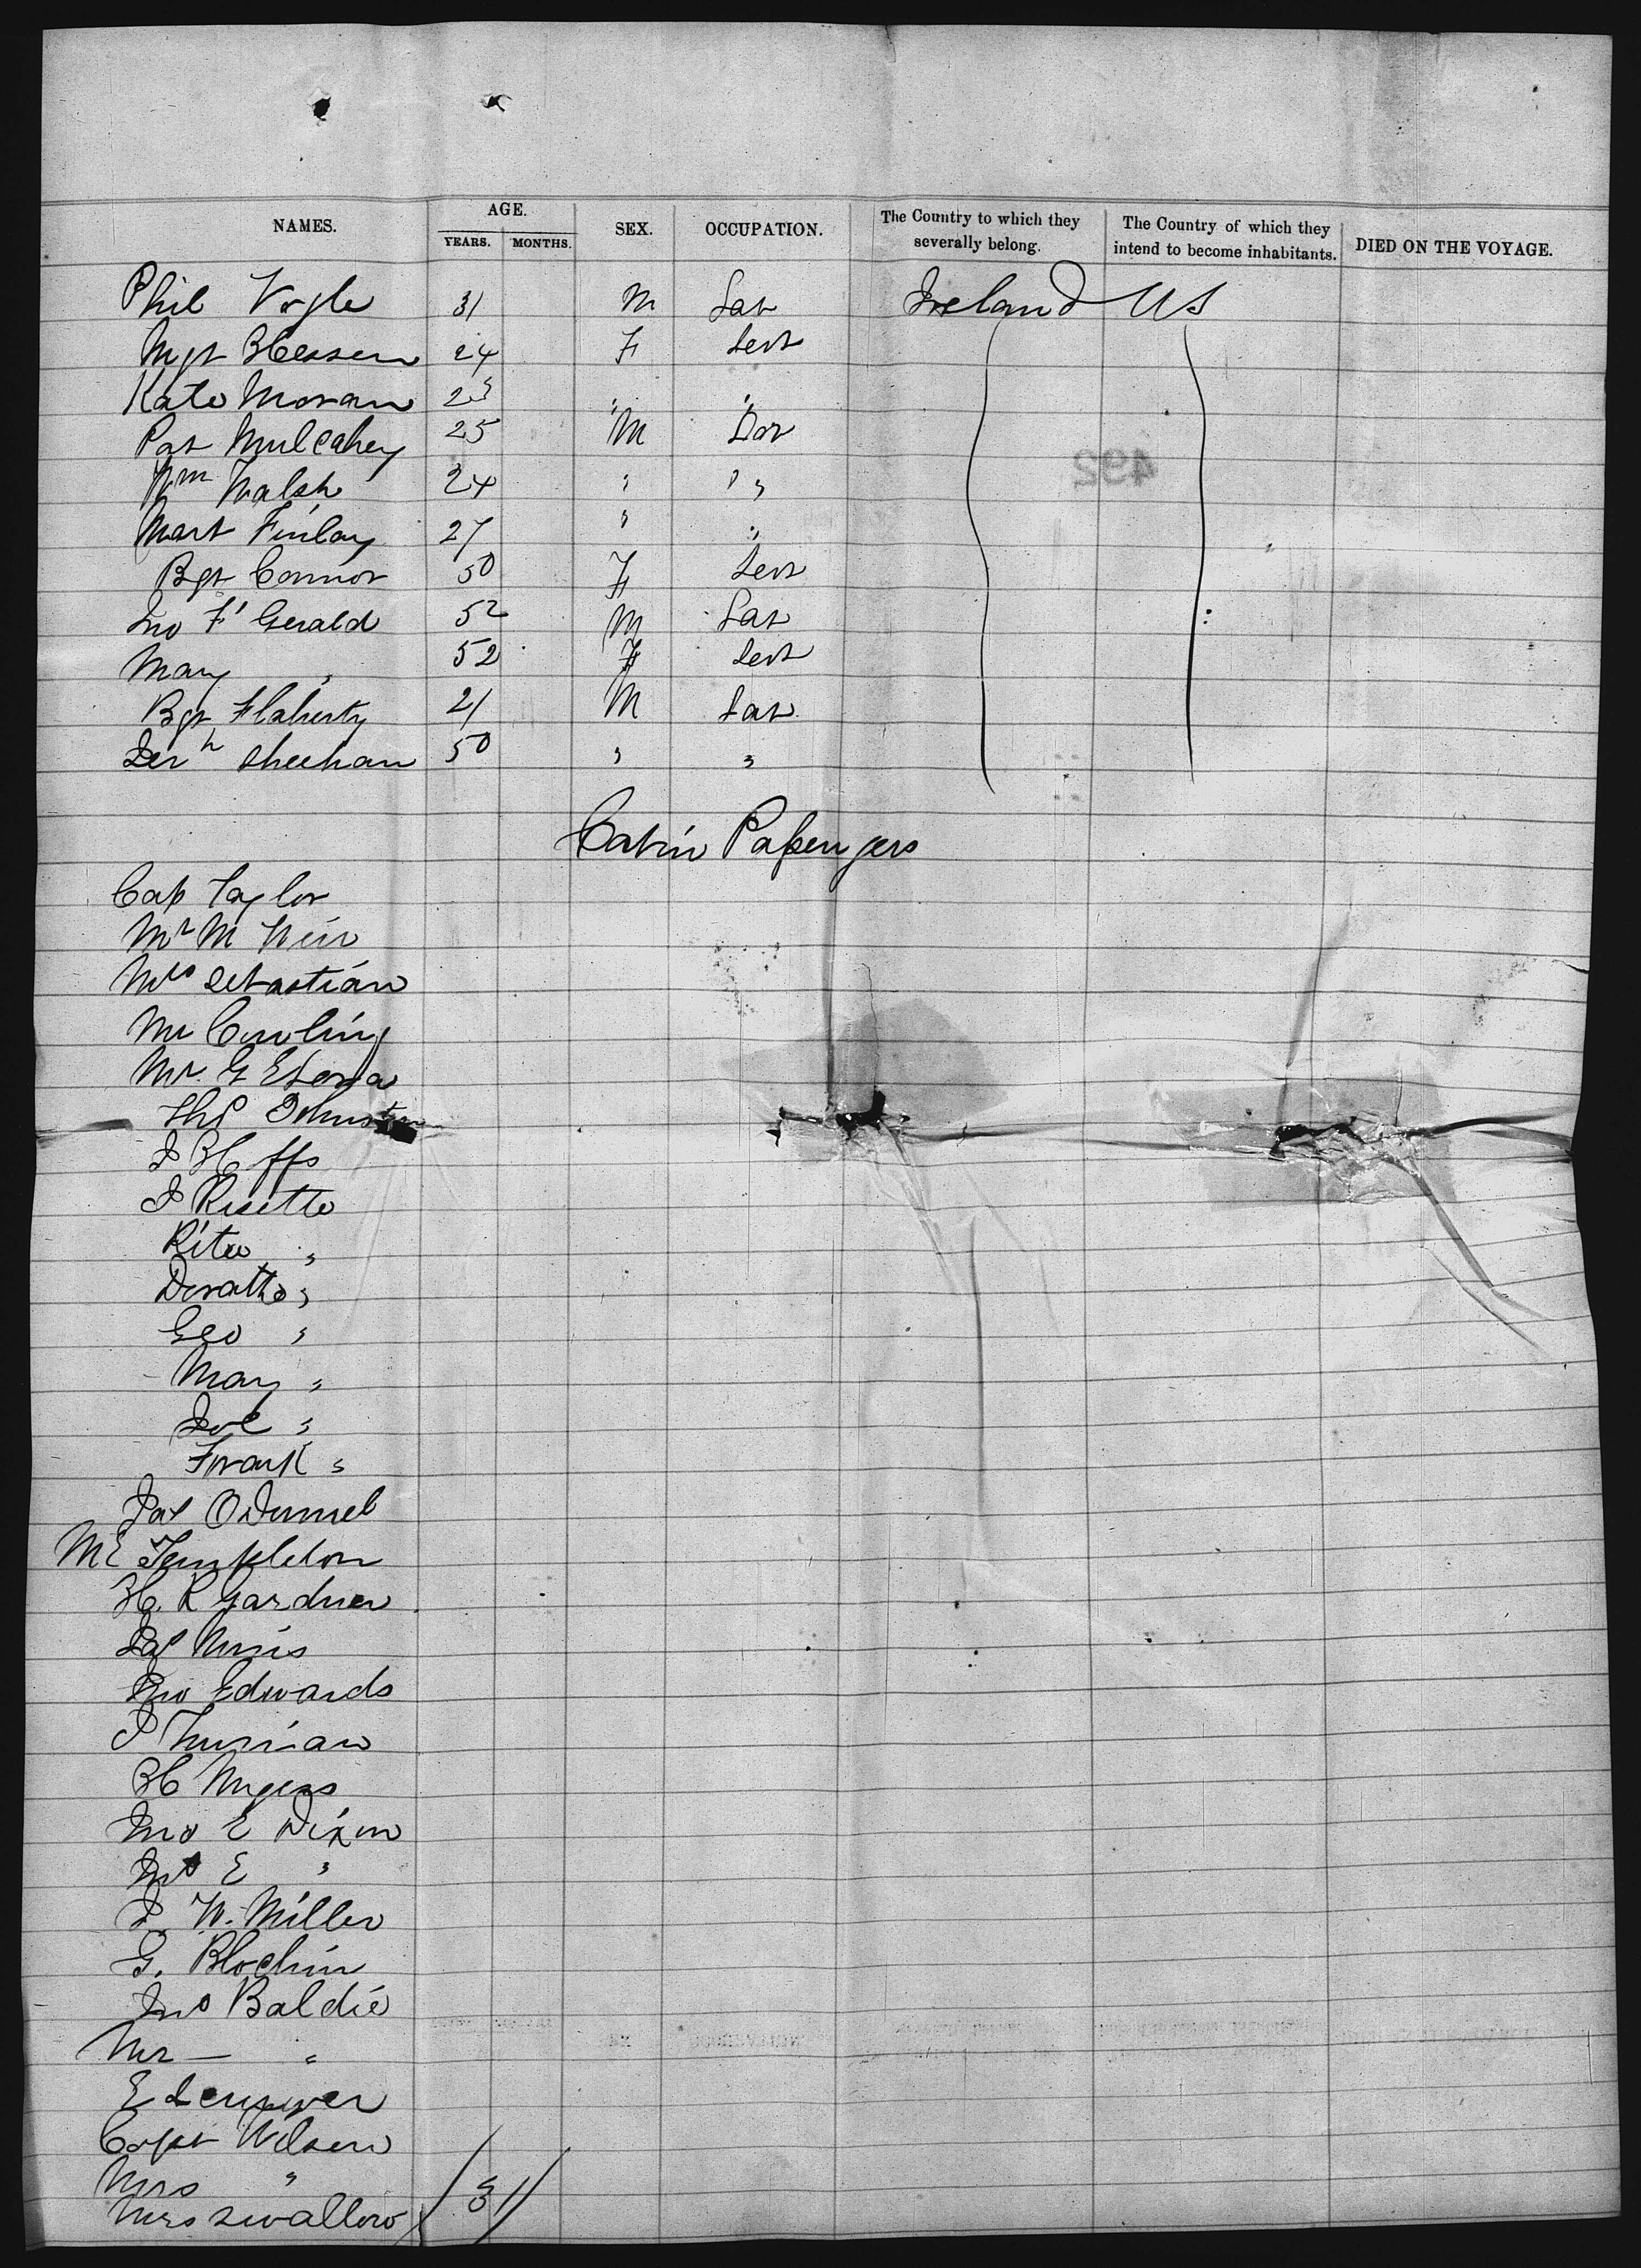 NAMES. AGE. SEX. OCCUPATION. The Country to which they severally belong. The Country of which they intend to become inhabitants. DIED ON THE VOYAGE.
YEARS. MONTHS.
Phil 31 M Lab Ireland US
Mgt 24 F Sevt
Kate Moran 23 " "
Pat Mulcahey 25 M Lab
Wm Walsh 24 " "
Mart Finlay 27 " "
Bgt Connor 50 F Sevt
Jno F'Gerald 52 M Lab
Mary " 52 F Sevt
Bgt Flaherty 21 M Lab
Jerh Sheehan 50 " "
492
Cabin Passengers
Cap Taylor
Mr M Weir
Mrs Sebastian
Mr
Mr. G
Thos Johnston
J
J Risetto
Rita "
"
Geo "
Mary "
Joe "
Frank "
Jas O
Mc Templeton
H. R Gardner
Jas
Jno Edwards
J
H Myers
Jno E Dixon
Mrs E "
J. W. Miller
G.
Jno Baldie
Mr — "
E
Capt Wilson
Mrs "
Mrs Swallow / 31 /